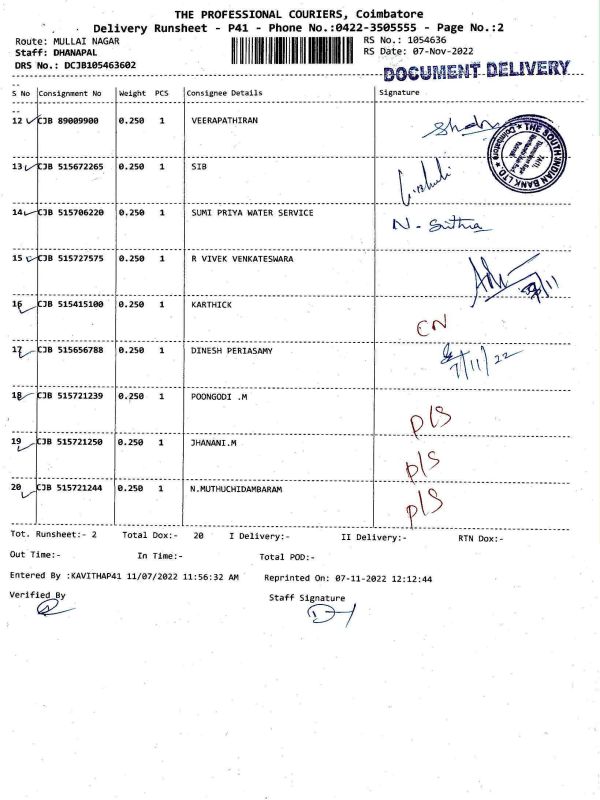 THE PROFESSIONAL COURIERS, Coimbatore
Delivery Runsheet - P41 - Phone No.:0422-3505555 - Page No.:2
Route: MULLAI NAGAR RS No.: 1054636
Staff: DHANAPAL RS Date: 07-Nov-2022
DRS No.: DCJB105463602
DOCUMENT DELIVERY
S No Consignment No Weight PCS Consignee Details Signature
12 CJB 89009900 0.250 1 VEERAPATHIRAN
THE SOUTH INDIAN BANK LTD. * Coimbatore *
13 CJB 515672265 0.250 1 SIB
14 CJB 515706220 0.250 1 SUMI PRIYA WATER SERVICE N-
15 CJB 515727575 0.250 1 R VIVEK VENKATESWARA
16 CJB 515415100 0.250 1 KARTHICK CN
17 CJB 515656788 0.250 1 DINESH PERIASAMY 7/11/22
18 CJB 515721239 0.250 1 POONGODI .M P/S
19 CJB 515721250 0.250 1 JHANANI.M P/S
20 CJB 515721244 0.250 1 N.MUTHUCHIDAMBARAM P/S
Tot. Runsheet:- 2 Total Dox:- 20 I Delivery:- II Delivery:- RTN Dox:-
Out Time:- In Time:- Total POD:-
Entered By :KAVITHAP41 11/07/2022 11:56:32 AM Reprinted On: 07-11-2022 12:12:44
Verified By Staff Signature